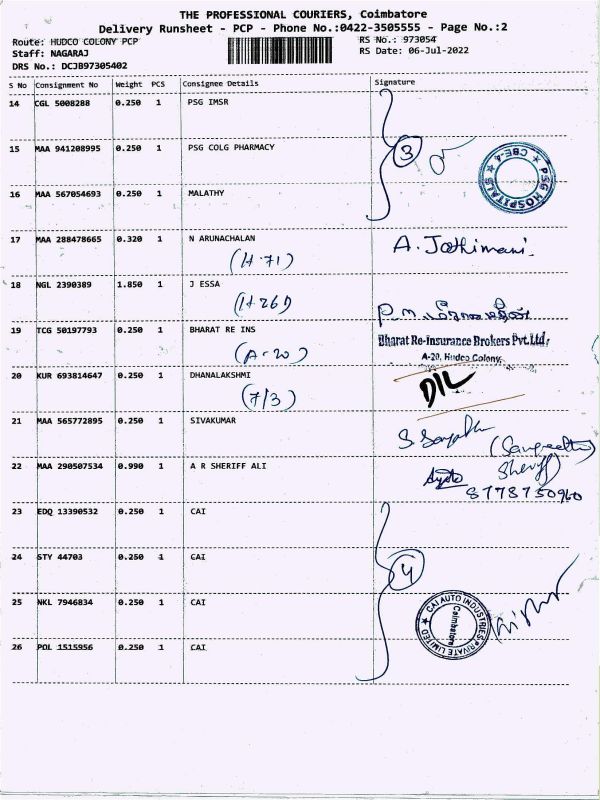 THE PROFESSIONAL COURIERS, Coimbatore
Delivery Runsheet - PCP - Phone No.:0422-3505555 - Page No.:2
Route: HUDCO COLONY PCP RS No.: 973054
Staff: NAGARAJ RS Date: 06-Jul-2022
DRS No.: DCJB97305402
S No Consignment No Weight PCS Consignee Details Signature
14 CGL 5008288 0.250 1 PSG IMSR
15 MAA 941208995 0.250 1 PSG COLG PHARMACY
3
PSG HOSPITALS
CBE-4
16 MAA 567054693 0.250 1 MALATHY
17 MAA 288478665 0.320 1 N ARUNACHALAN A. Jothimani.
(H-71)
18 NGL 2390389 1.850 1 J ESSA
(H-26)
19 TCG 50197793 0.250 1 BHARAT RE INS Bharat Re-Insurance Brokers Pvt.Ltd,
(A-20) A-20, Hudco Colony,
20 KUR 693814647 0.250 1 DHANALAKSHMI D/L
(7/3)
21 MAA 565772895 0.250 1 SIVAKUMAR
22 MAA 290507534 0.990 1 A R SHERIFF ALI
8778750960
23 EDQ 13390532 0.250 1 CAI
24 STY 44703 0.250 1 CAI
4
25 NKL 7946834 0.250 1 CAI
CAI AUTO INDUSTRIES PRIVATE LIMITED
Coimbatore
26 POL 1515956 0.250 1 CAI